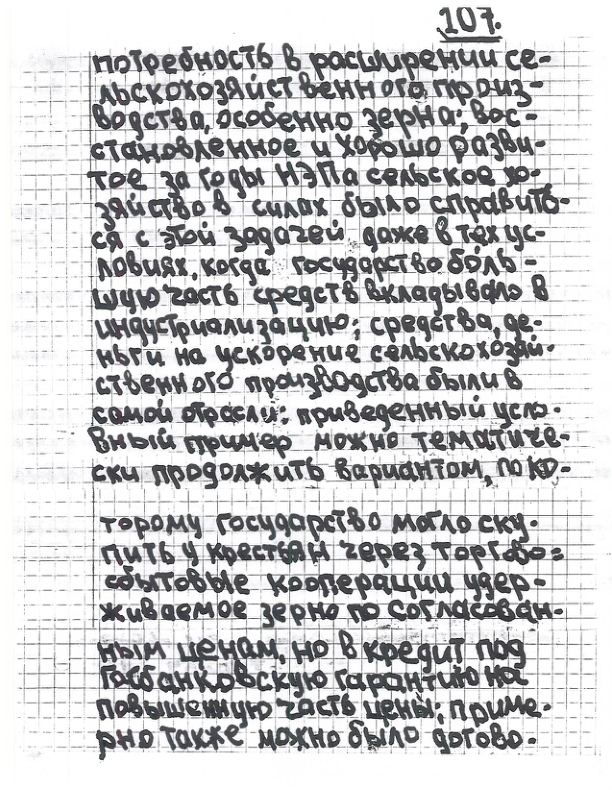 107.
потребность в расширении се-
льскохозяйственного произ-
водства, особенно зерна; вос-
становленное и хорошо разви-
тое за годы НЭПа сельское хо-
зяйство в силах было справить-
ся с этой задачей даже в тех ус-
ловиях, когда государство боль-
шую часть средств вкладывало в
индустриализацию; средства, де-
ньги на ускорение сельскохозяй-
ственного производства были в
самой отрасли: приведенный усло-
вный пример можно тематиче-
ски продолжить вариантом, по ко-
торому государство могло ску-
пить у крестьян через торгово=
сбытовые кооперации удер-
живаемое зерно по согласован-
ным ценам, но в кредит под
Госбанковскую гарантию на
повышенную часть цены; приме-
рно также можно было догово-